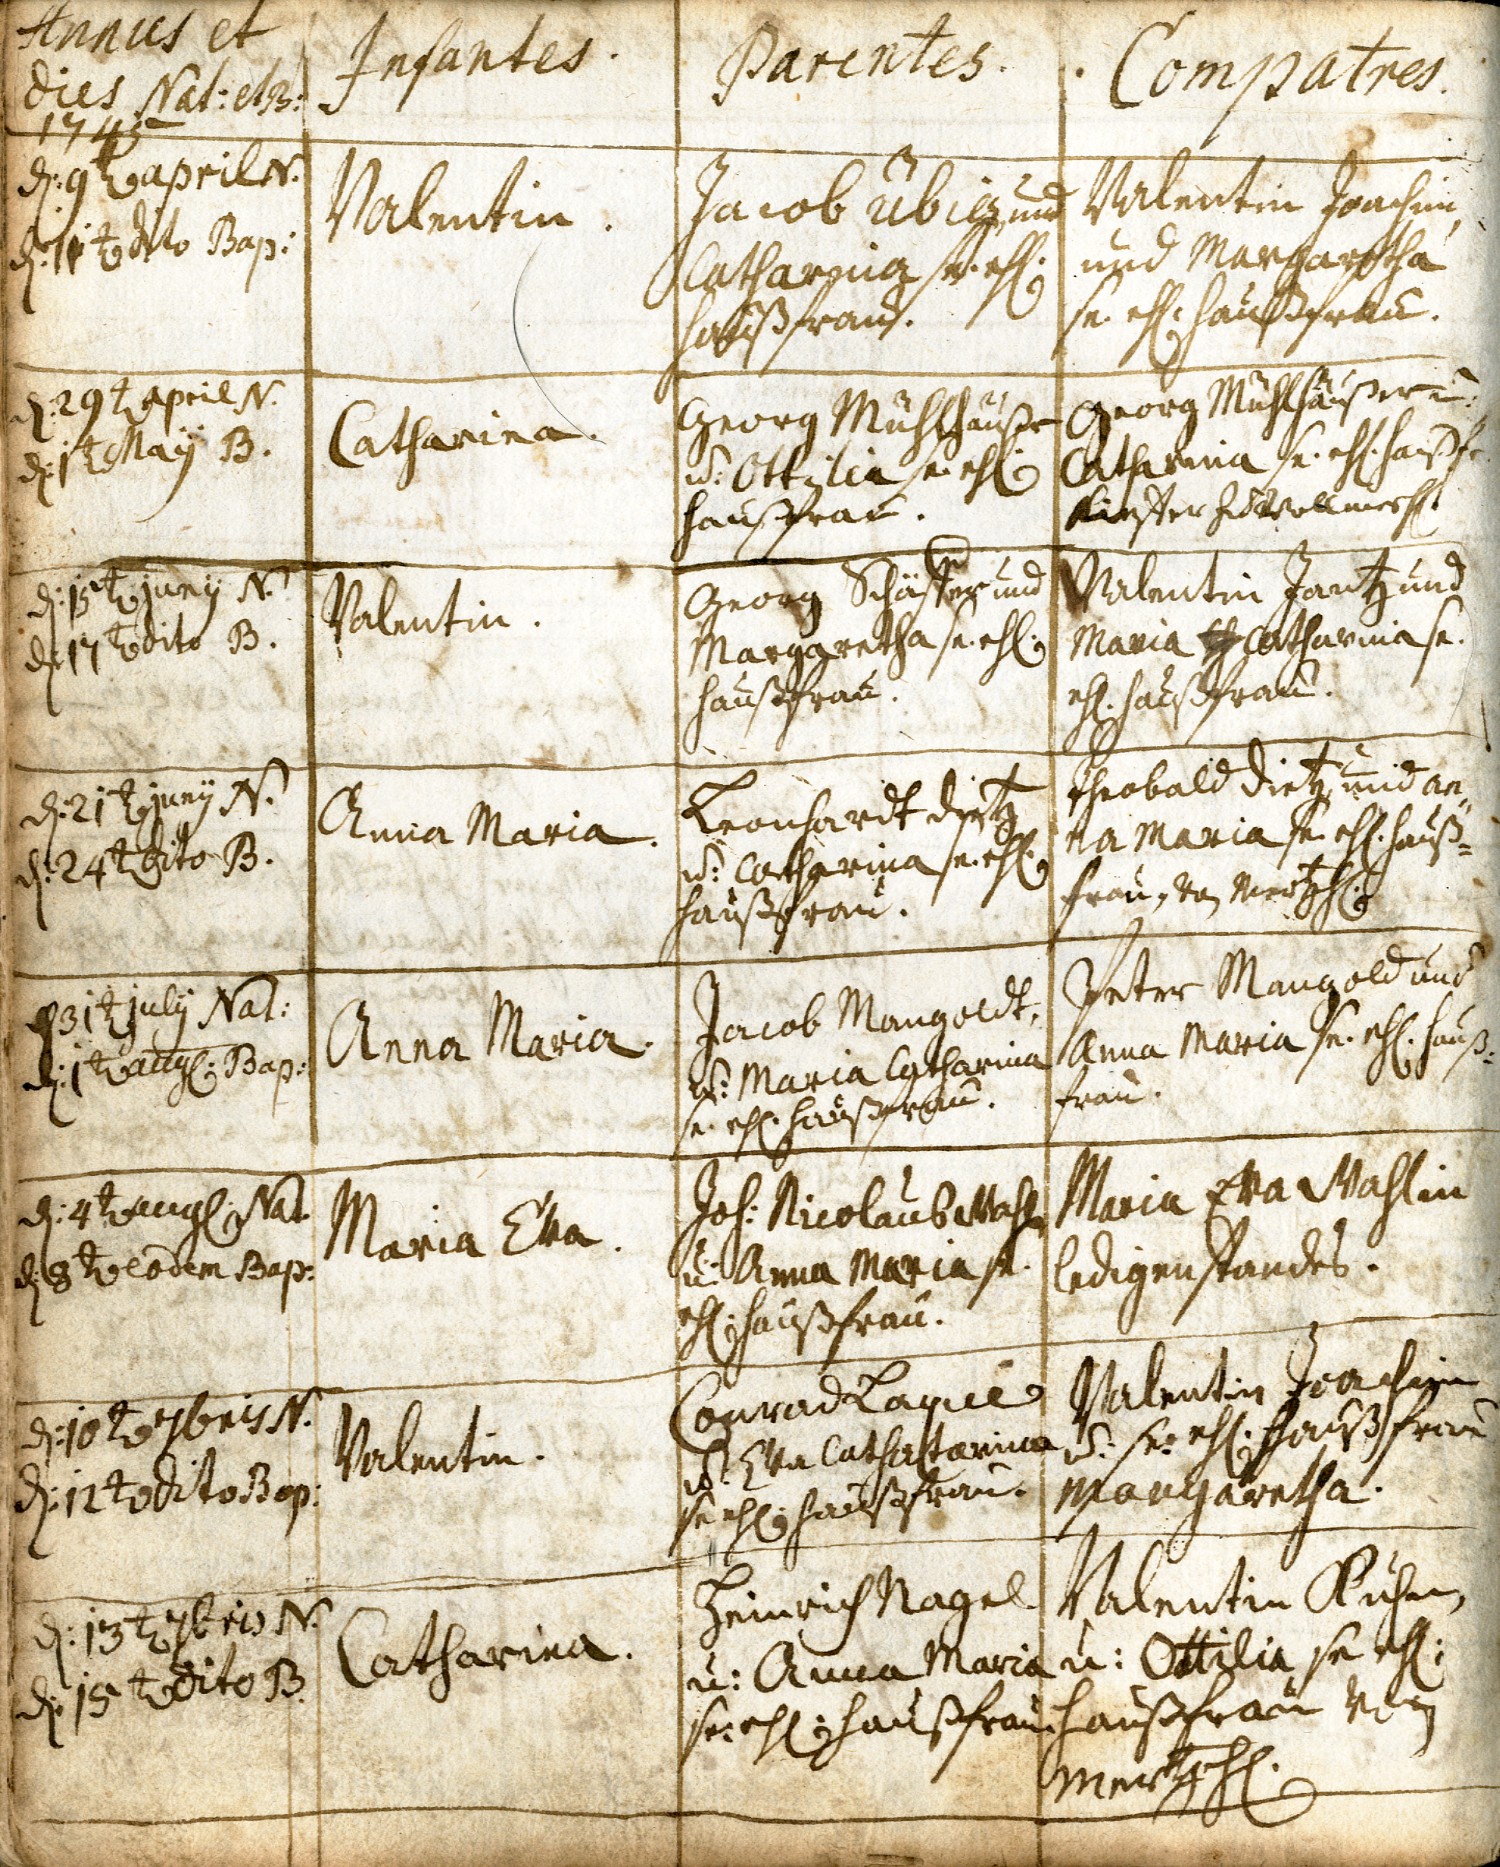 Annus et
dies Nat: et B:
1745
Infantes.
Parentes.
Compatres.
d: 9t april N.
d: 11t dito Bap:
Valentin.
Jacob Übig und
Catharina se. ehl:
haußfrau.
Valentin Joachim,
und Margaretha
se. ehl: haußfrau.
d: 29t april N.
d: 1t May B.
Catharina.
Georg Mühlhäußer
u: Ottilia se. ehl:
haußfrau.
Georg Mühlhäußer u:
Catharina se. ehl. haußfr.
d: 15t juny N.
d: 17t dito B.
Valentin.
Georg Schäffer und
Margaretha se. ehl:
haußfrau.
Valentin Jantz und
Maria Catharina se.
ehl. haußfrau.
d: 21t juny N.
d: 24t dito B.
Anna Maria.
Leonhardt dietz
u: Catharina se. ehl:
haußfrau.
Theobald Dietz und An
na Maria se. ehl. hauß=
frau, von Mertzh:
d: 31t july Nat:
d: 1t augl: Bap:
Anna Maria.
Jacob Mangoldt,
u: Maria Catharina
se. ehl. haußfrau.
Peter Mangold und
Anna Maria se. ehl. hauß=
frau.
d: 4t augl: Nat.
d: 8t eodem Bap:
Maria Eva.
Joh: Nicolaus Wahl
u: Anna Maria se.
ehl: haußfrau.
Maria Eva Wahlin
ledigenstandes.
d: 10t 7bris N.
d: 12t dito Bap:
Valentin.
Conrad Laque
u: Eva Cathatarina
se ehl: haußfrau.
Valentin Joachim
u: se: ehl: haußfrau
Margaretha.
d: 13t 7bris N.
d: 15t dito B.
Catharina.
Heinrich Nagel
u: Anna Maria
se: ehl: haußfrau.
Valentin Kuhn,
u: Ottilia se ehl:
haußfrau von
Mertzh: